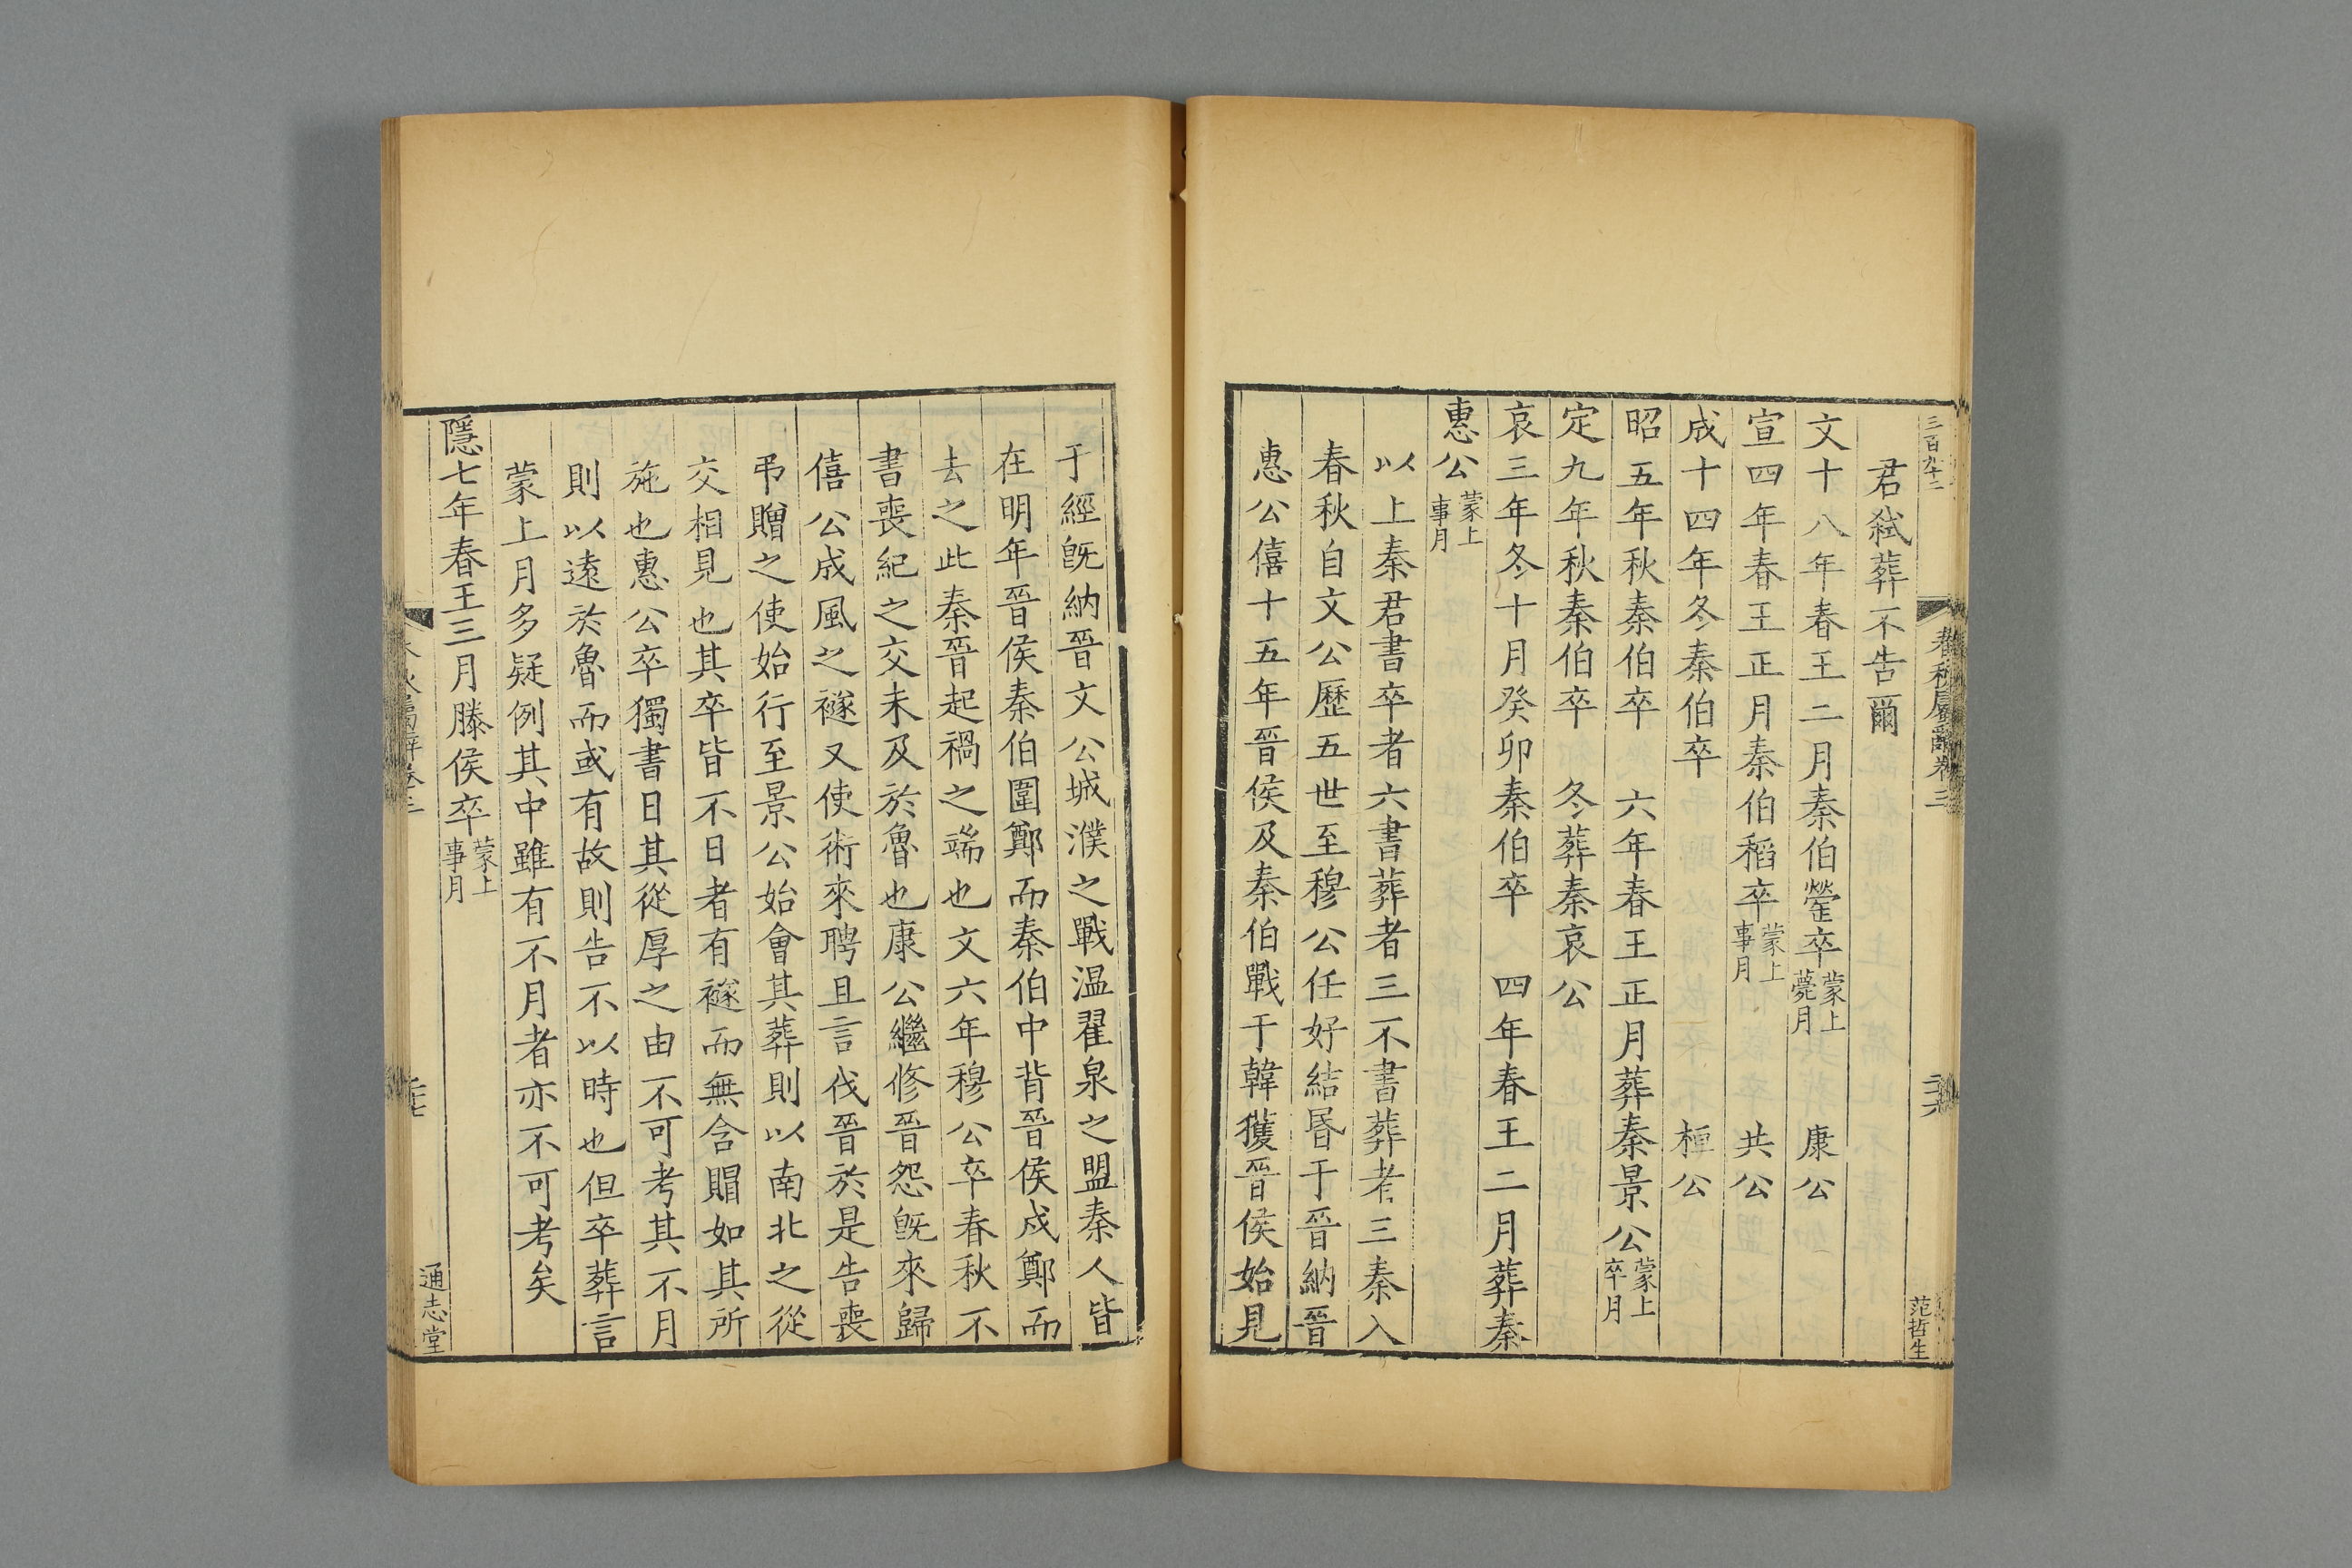 三百九十二
春秋屬辭卷三
二十六
范哲生
君弒葬不告爾
文十八年春王二月秦伯罃卒蒙上薨月 康公
宣四年春王正月秦伯稻卒蒙上事月 共公
成十四年冬秦伯卒 桓公
昭五年秋秦伯卒 六年春王正月葬秦景公蒙上卒月
定九年秋秦伯卒 冬葬秦哀公
哀三年冬十月癸卯秦伯卒 四年春王二月葬秦
惠公蒙上事月
以上秦君書卒者六書葬者三不書葬者三秦入
春秋自文公歷五世至穆公任好結昬于晉納晉
惠公僖十五年晉侯及秦伯戰于韓獲晉侯始見
于經旣納晉文公城濮之戰温翟泉之盟秦人皆
在明年晉侯秦伯圍鄭而秦伯中背晉侯戍鄭而
去之此秦晉起禍之端也文六年穆公卒春秋不
書喪紀之交未及於魯也康公繼修晉怨旣來歸
僖公成風之襚又使術來聘且言伐晉於是告喪
弔贈之使始行至景公始會其葬則以南北之從
交相見也其卒皆不日者有襚而無含賵如其所
施也惠公卒獨書日其從厚之由不可考其不月
則以遠於魯而或有故則告不以時也但卒葬言
蒙上月多疑例其中雖有不月者亦不可考矣
隱七年春王三月滕侯卒蒙上事月
春秋屬辭卷三
二十七
通志堂